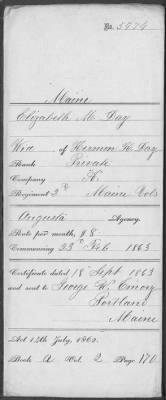 No. 5474
Maine
Elizabeth M. Day
Wid. of Hermon H. Day
Rank Private
Company K.
Regiment 3d Maine Vols
Augusta Agency.
Rate per month, $8
Commencing 23d Feb. 1863
Certificate dated 18 Sept 1863
and sent to George F. Emery
Portland
Maine
Act 14th July, 1862.
Book A Vol. 2 Page 170